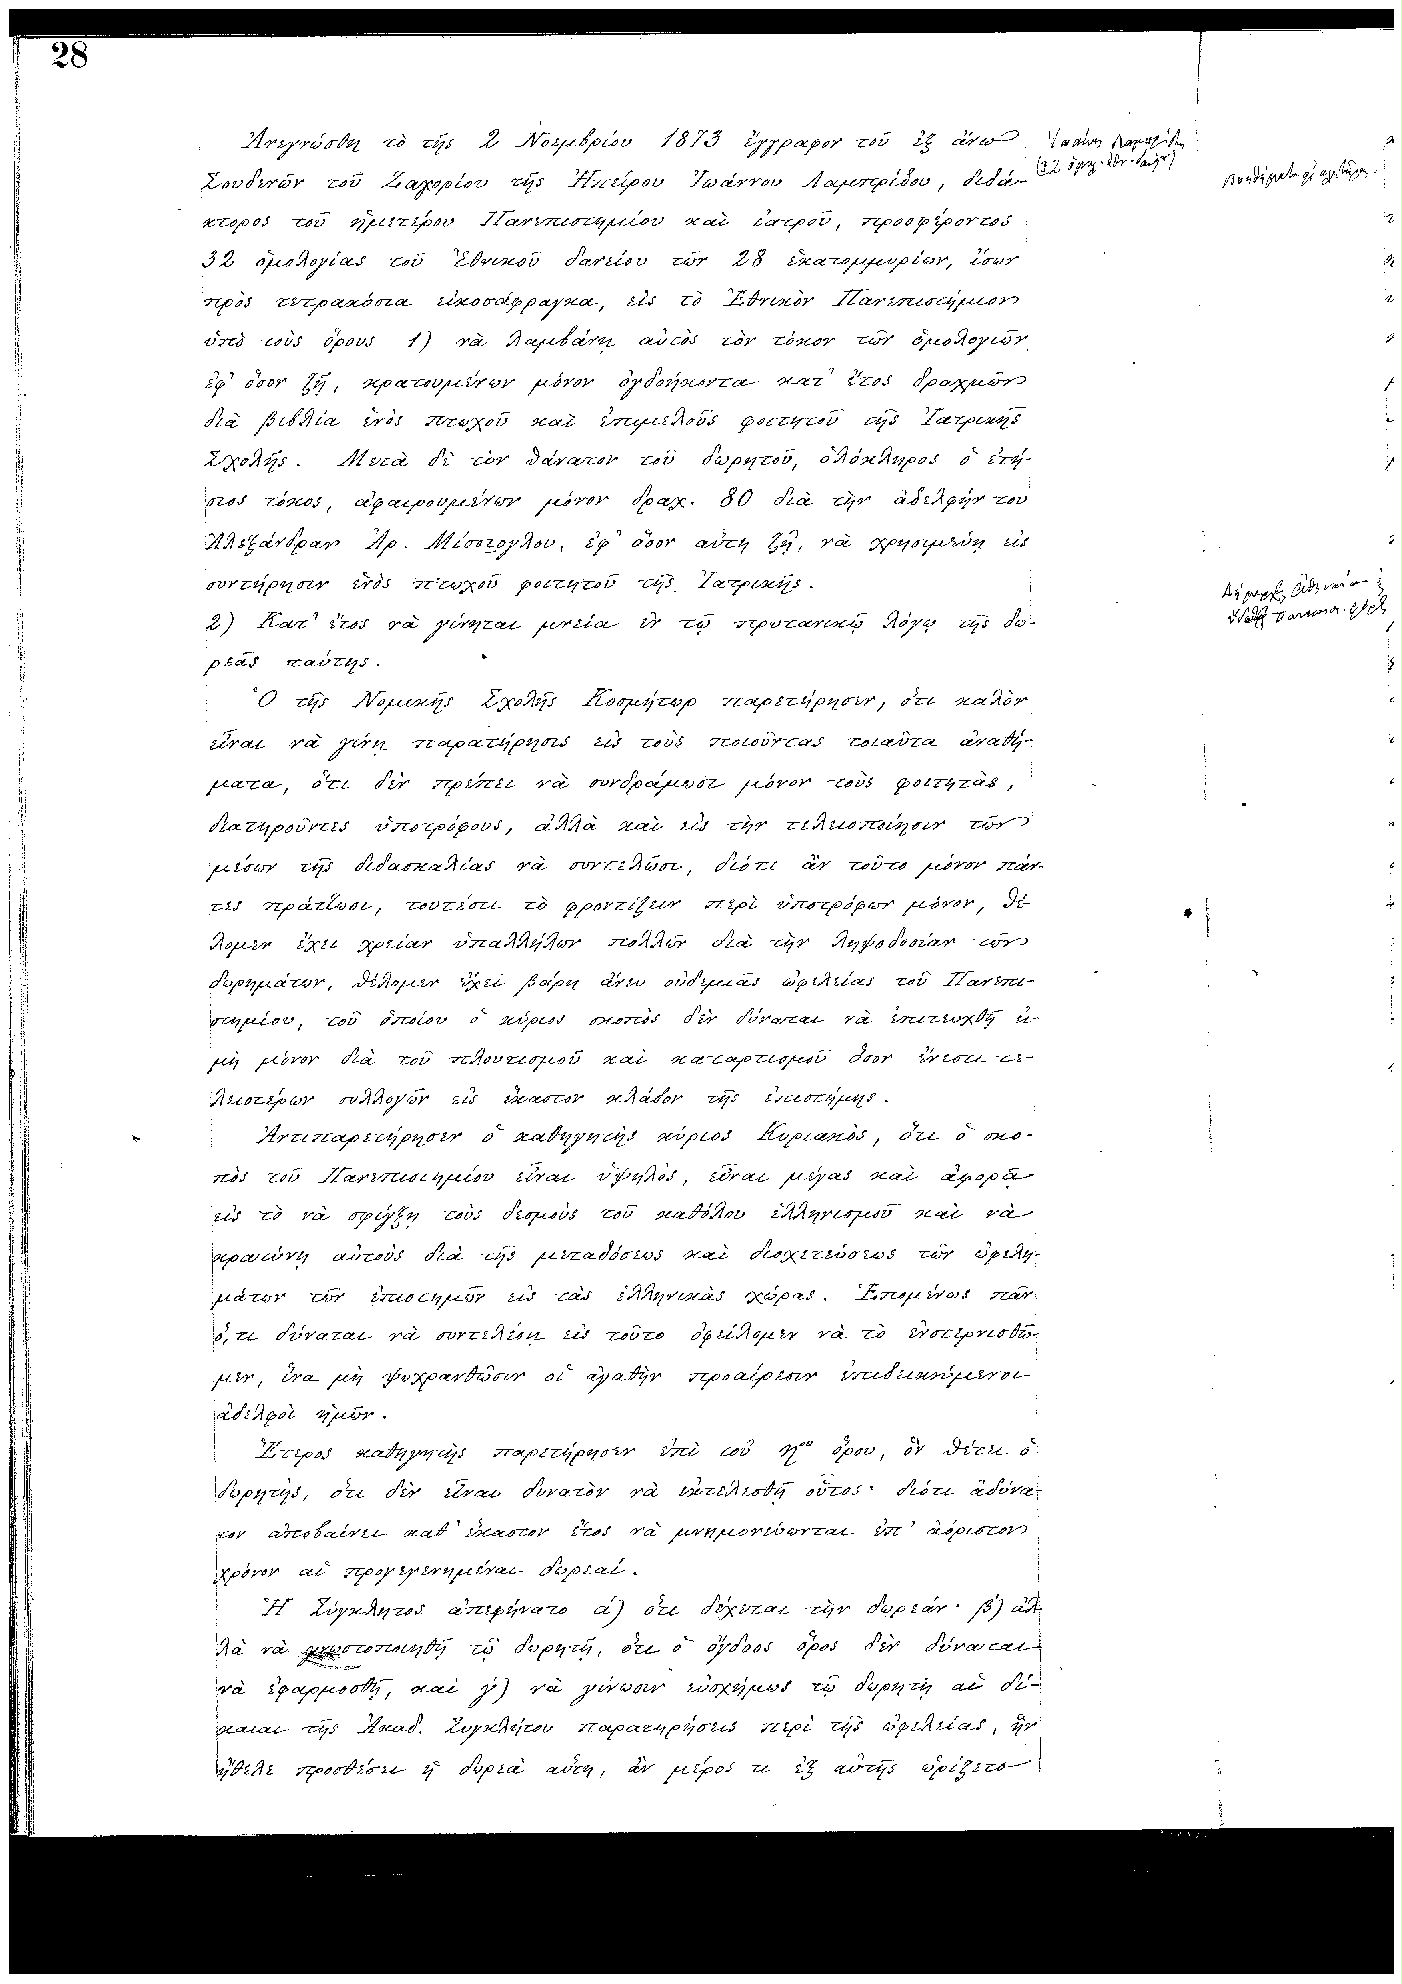 28
Ἀνεγνώσθη τὸ τῆς 2 Νοεμβρίου 1873 ἔγγραφον τοῦ ἐξ ἄνω
Σουδενῶν τοῦ Ζαγορίου τῆς Ἠπείρου Ἰωάννου Λαμπρίδου, διδά-
κτορος τοῦ ἡμετέρου Πανεπιστημίου καὶ ἰατροῦ, προσφέροντος
32 ὁμολογίας τοῦ Ἐθνικοῦ δανείου τῶν 28 ἑκατομμυρίων, ἴσων
πρὸς τετρακόσια εἰκοσάφραγκα, εἰς τὸ Ἐθνικὸν Πανεπιστήμιον
ὑπὸ τοὺς ὅρους 1) νὰ λαμβάνῃ αὐτὸς τὸν τόκον τῶν ὁμολογιῶν
ἐφ' ὅσον ζῇ, κρατουμένων μόνον ὀγδοήκοντα κατ' ἔτος δραχμῶν
διὰ βιβλία ἑνὸς πτωχοῦ καὶ ἐπιμελοῦς φοιτητοῦ τῆς Ἰατρικῆς
Σχολῆς. Μετὰ δὲ τὸν θάνατον τοῦ δωρητοῦ, ὁλόκληρος ὁ ἐτή-
σιος τόκος, ἀφαιρουμένων μόνον δραχ. 80 διὰ τὴν ἀδελφήν του
Ἀλεξάνδραν Ἀρ. Μίσσιογλου, ἐφ' ὅσον αὕτη ζῇ, νὰ χρησιμεύῃ εἰς
συντήρησιν ἑνὸς πτωχοῦ φοιτητοῦ τῆς Ἰατρικῆς.
2) Κατ' ἔτος νὰ γίνηται μνεία ἐν τῷ πρυτανικῷ λόγῳ τῆς δω-
ρεᾶς ταύτης.
Ὁ τῆς Νομικῆς Σχολῆς Κοσμήτωρ παρετήρησεν, ὅτι καλὸν
εἶναι νὰ γίνῃ παρατήρησις εἰς τοὺς ποιοῦντας τοιαῦτα ἀναθή-
ματα, ὅτι δὲν πρέπει νὰ συνδράμωσι μόνον τοὺς φοιτητὰς,
διατηροῦντες ὑποτρόφους, ἀλλὰ καὶ εἰς τὴν τελειοποίησιν τῶν
μέσων τῆς διδασκαλίας νὰ συντελῶσι, διότι ἂν τοῦτο μόνον πάν-
τες πράττωσι, τουτέστι τὸ φροντίζειν περὶ ὑποτρόφων μόνον, θέ-
λομεν ἔχει χρείαν ὑπαλλήλων πολλῶν διὰ τὴν ληψοδοσίαν τῶν
δωρημάτων, θέλομεν ἔχει βάρη ἄνευ οὐδεμιᾶς ὠφελείας τοῦ Πανεπι-
στημίου, τοῦ ὁποίου ὁ κύριος σκοπὸς δὲν δύναται νὰ ἐπιτευχθῇ εἰ
μὴ μόνον διὰ τοῦ πλουτισμοῦ καὶ καταρτισμοῦ ὅσον ἔνεστι τε-
λειοτέρων συλλογῶν εἰς ἕκαστον κλάδον τῆς ἐπιστήμης.
Ἀντιπαρετήρησεν ὁ καθηγητὴς κύριος Κυριακὸς, ὅτι ὁ σκο-
πὸς τοῦ Πανεπιστημίου εἶναι ὑψηλὸς, εἶναι μέγας καὶ ἀφορᾷ
εἰς τὸ νὰ σφίγξῃ τοὺς δεσμοὺς τοῦ καθόλου ἑλληνισμοῦ καὶ νὰ
κρατύνῃ αὐτοὺς διὰ τῆς μεταδόσεως καὶ διοχετεύσεως τῶν ὠφελη-
μάτων τῶν ἐπιστημῶν εἰς τὰς ἑλληνικὰς χώρας. Ἑπομένως πᾶν
ὅ,τι δύναται νὰ συντελέσῃ εἰς τοῦτο ὀφείλομεν νὰ τὸ ἐνστερνισθῶ-
μεν, ἵνα μὴ ψυχρανθῶσιν οἱ ἀγαθὴν προαίρεσιν ἐπιδεικνύμενοι
ἀδελφοὶ ἡμῶν.
Ἕτερος καθηγητὴς παρετήρησεν ἐπὶ τοῦ η<sup>ου</sup> ὅρου, ὃν θέτει ὁ
δωρητὴς, ὅτι δὲν εἶναι δυνατὸν νὰ ἐκτελεσθῇ οὗτος· διότι ἀδύνα-
τον ἀποβαίνει καθ' ἕκαστον ἔτος νὰ μνημονεύωνται ἐπ' ἀόριστον
χρόνον αἱ προγεγενημέναι δωρεαί.
Ἡ Σύγκλητος ἀπεφήνατο α) ὅτι δέχεται τὴν δωρεάν· β) ἀλ-
λὰ νὰ γνωστοποιηθῇ τῷ δωρητῇ, ὅτι ὁ ὄγδοος ὅρος δὲν δύναται
νὰ ἐφαρμοσθῇ, καὶ γ) νὰ γίνωσιν εὐσχήμως τῷ δωρητῇ αἱ δί-
καιαι τῆς Ἀκαδ. Συγκλήτου παρατηρήσεις περὶ τῆς ὠφελείας, ἣν
ἤθελε προσθέσει ἡ δωρεὰ αὕτη, ἂν μέρος τι ἐξ αὐτῆς ὡρίζετο